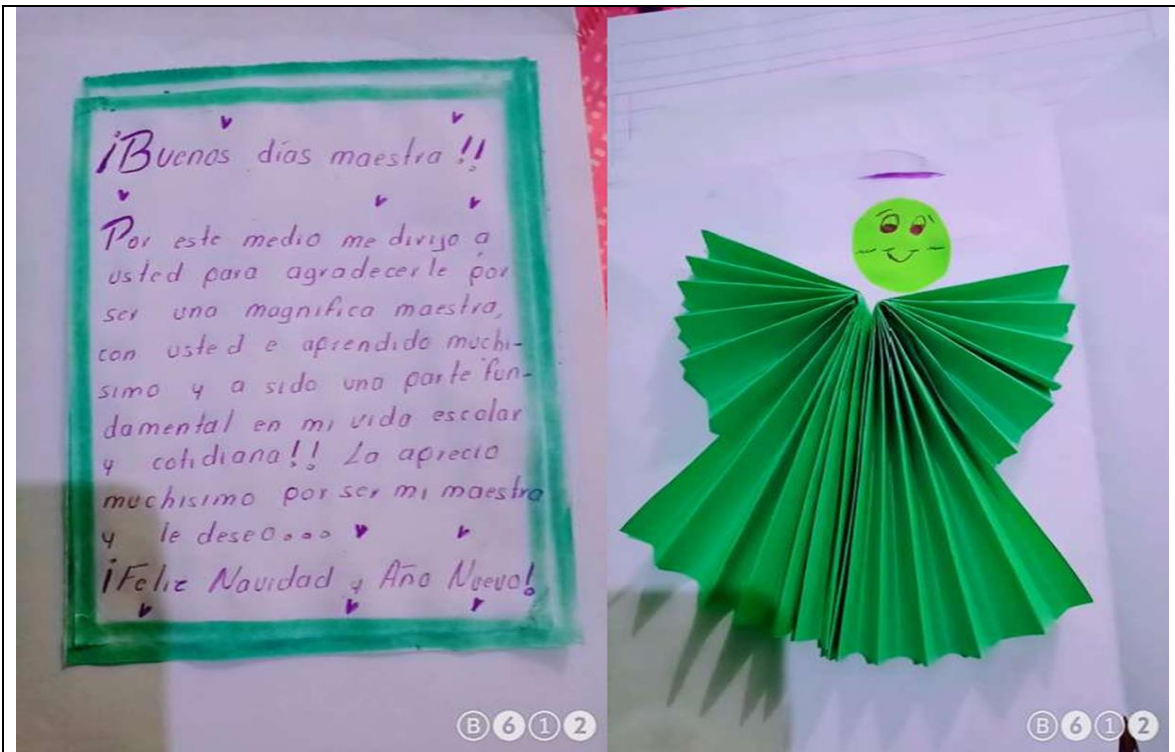 ¡Buenos días maestra!!
Por este medio me dirijo a
usted para agradecerle por
ser una magnifica maestra,
con usted e aprendido muchi-
simo y a sido una parte fun-
damental en mi vida escolar
y cotidiana!! La aprecio
muchisimo por ser mi maestra
y le deseo....
¡Feliz Navidad y Año Nuevo!
B612
B612